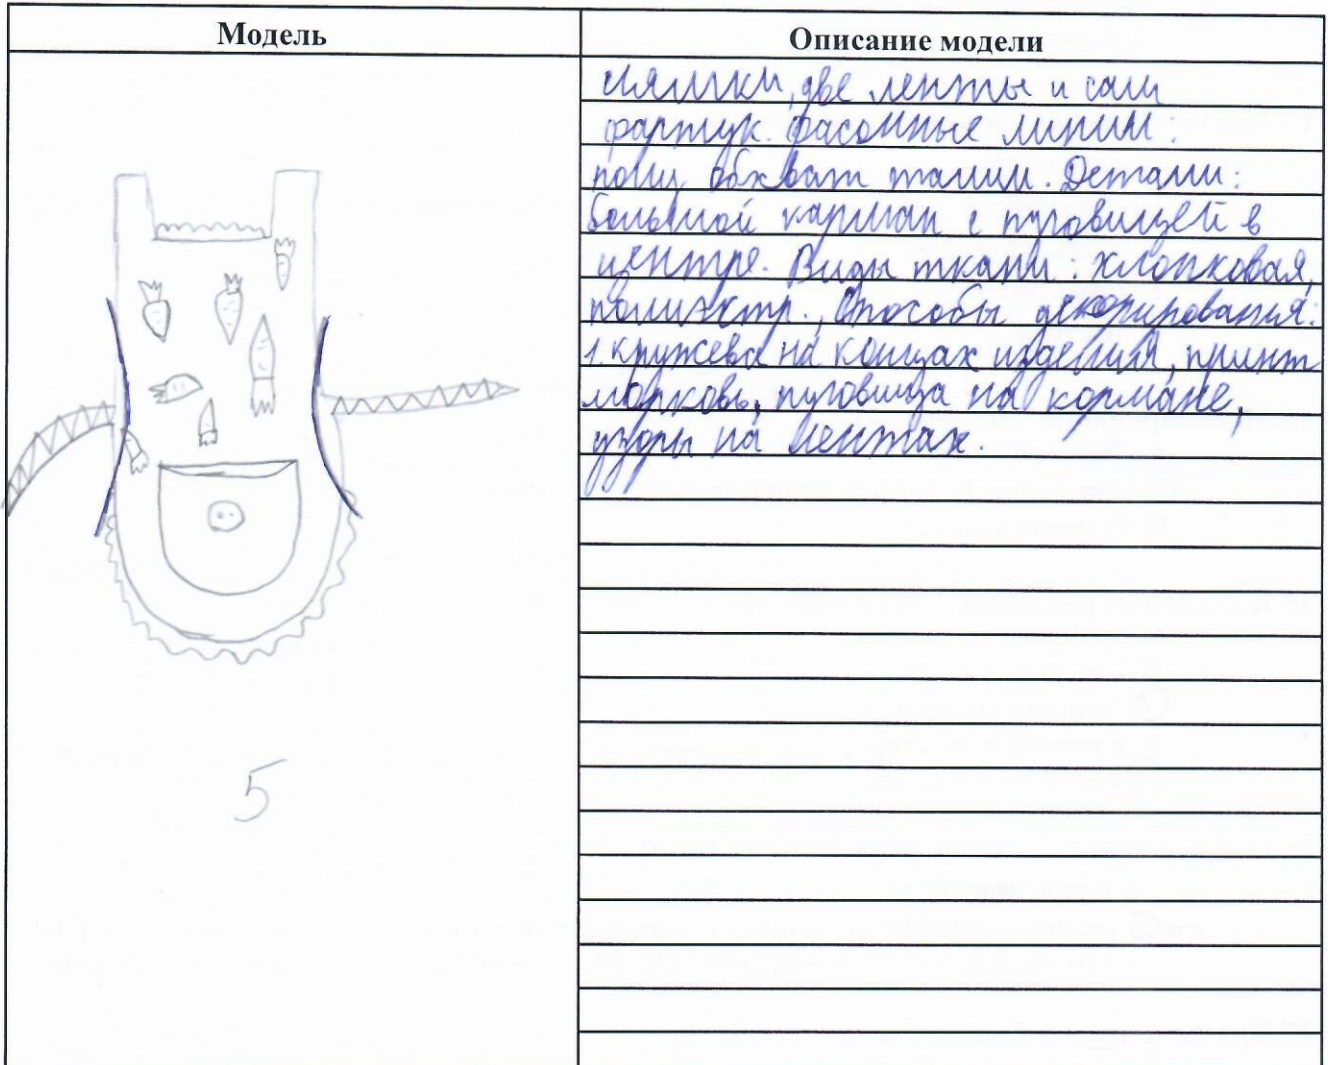 Модель
Описание модели
лямки, две ленты и сам
фартук. фасонные линии:
обхват талии. Детали:
большой карман с пуговицей в
центре. Виды ткани: хлопковая,
полиэстр., Способы декорирования:
1. кружева на концах изделия, принт
морковь, пуговица на кормане,
узоры на лентах.
5